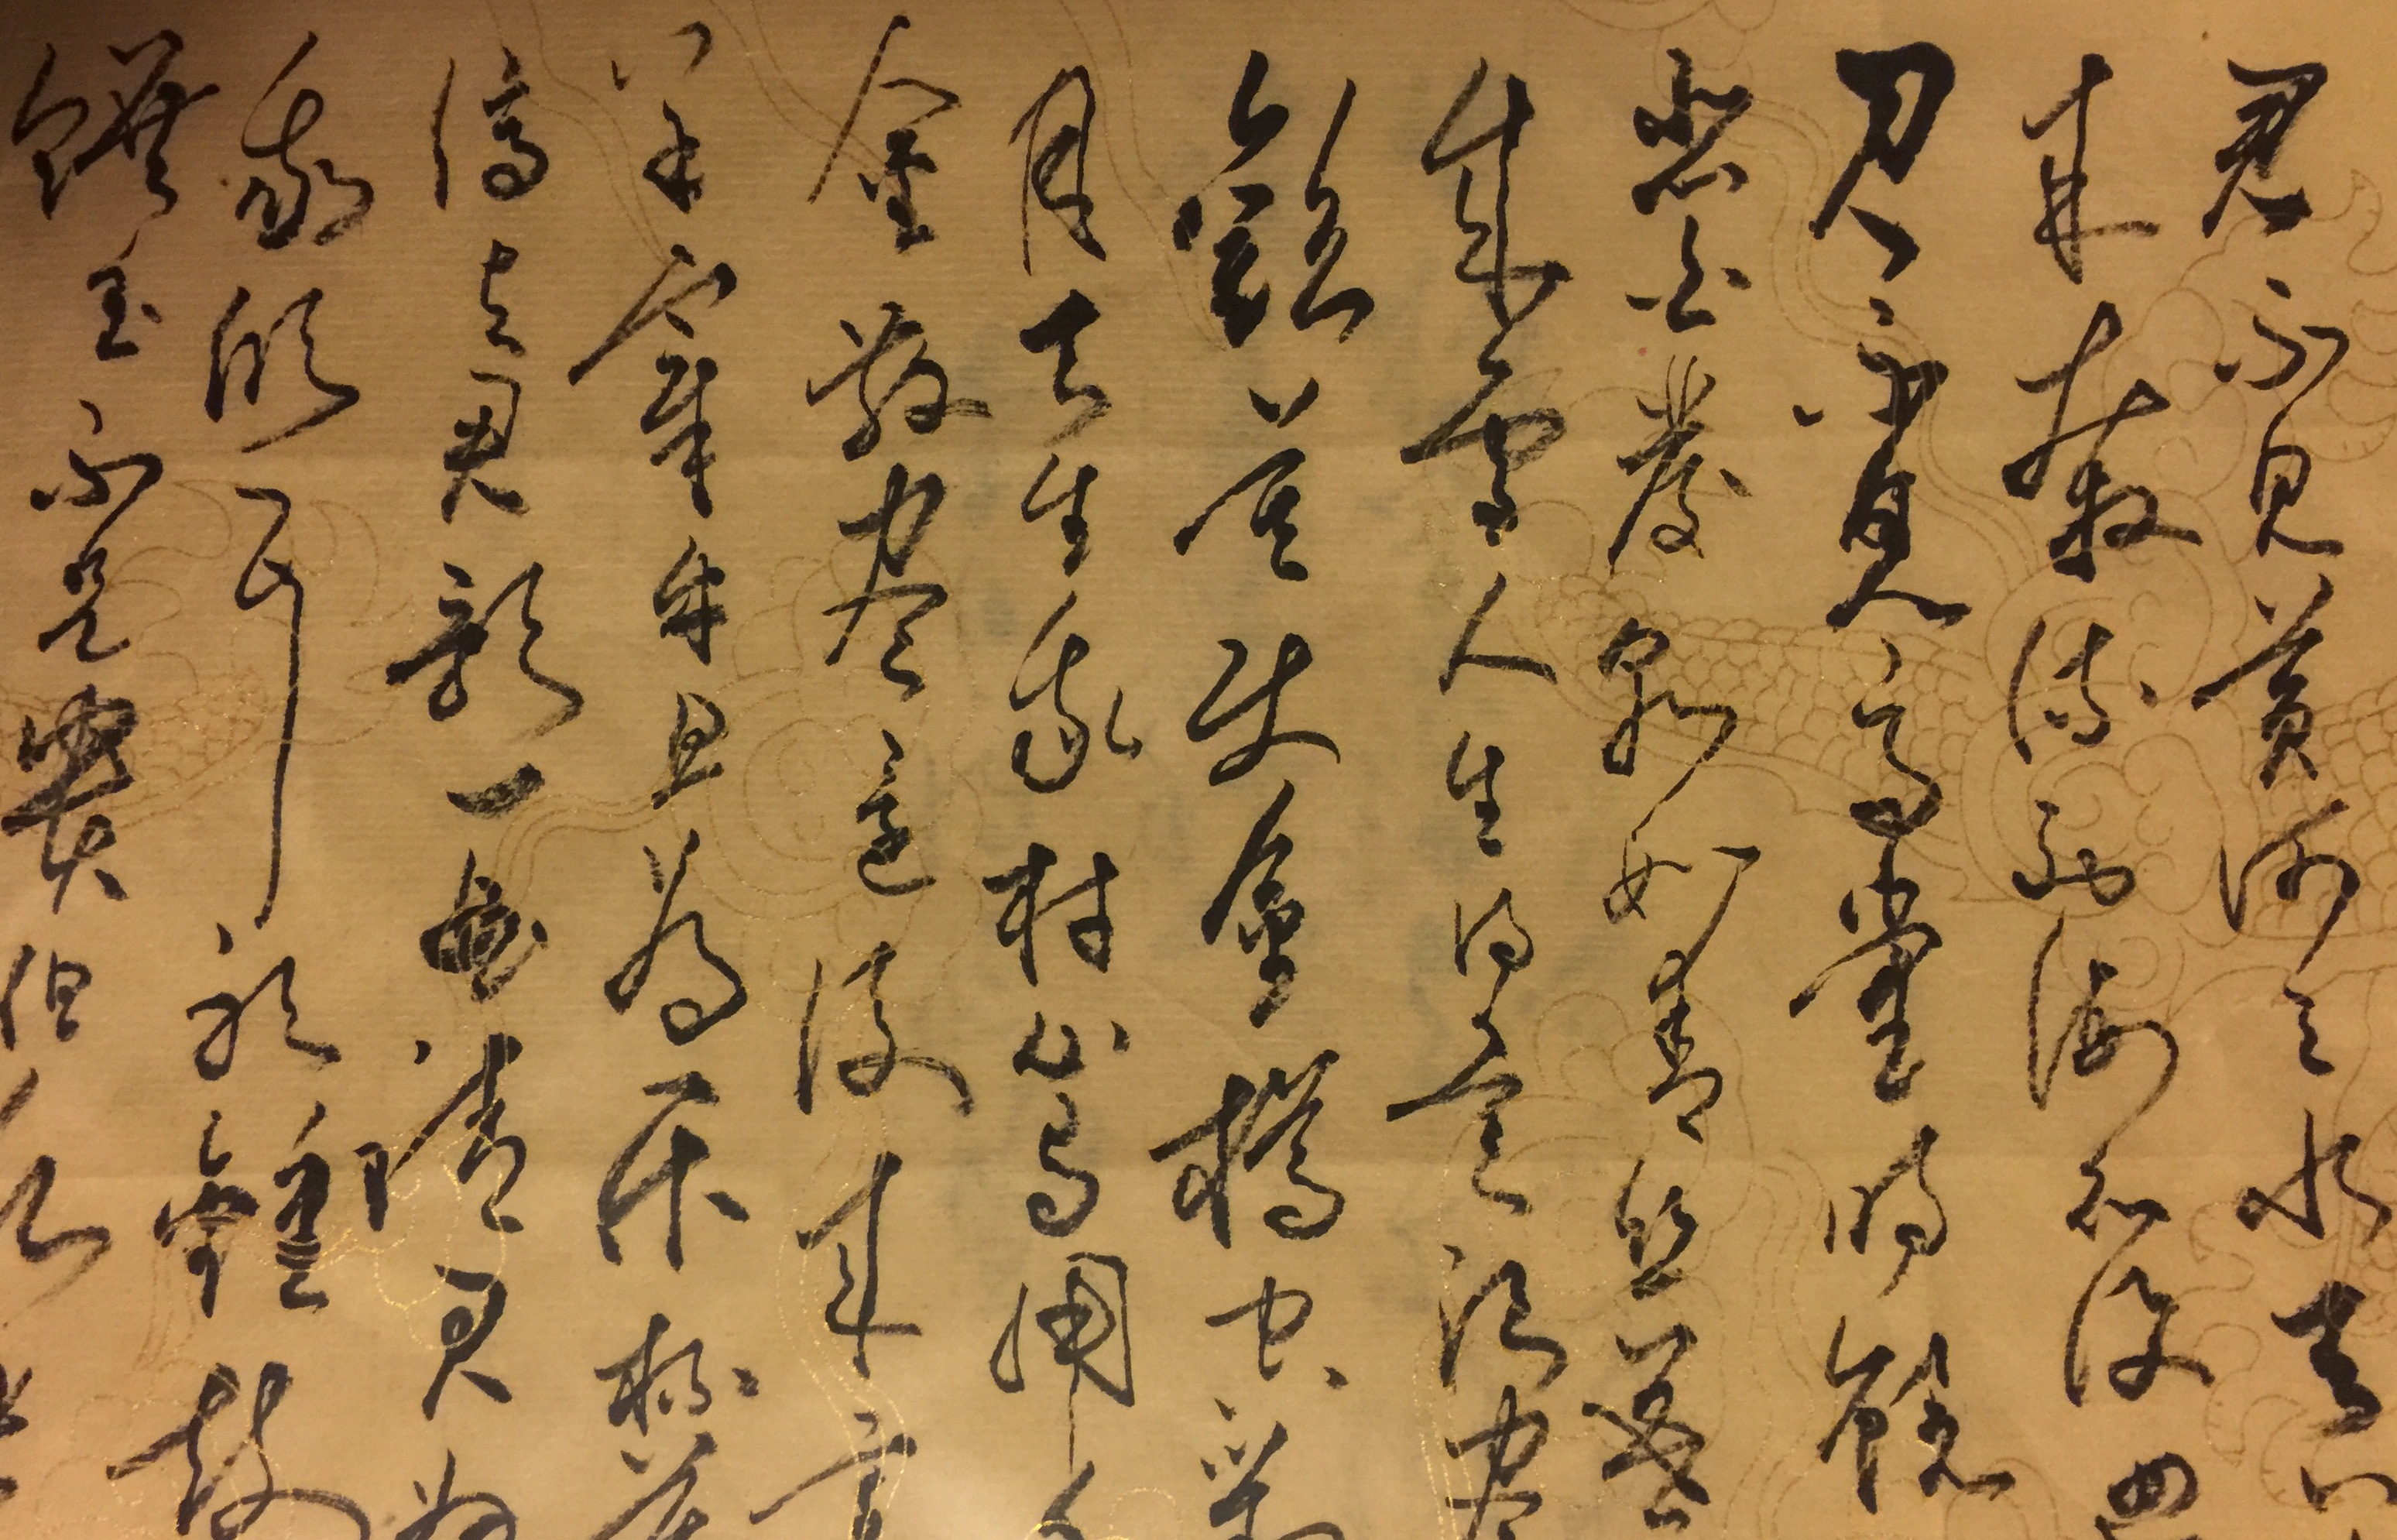 君不見黃河之水天
來奔流到海不復回
君不見高堂明鏡
悲白髮朝如青絲暮
成雪人生得意須盡
歡莫使金樽空對
月天生我材必有用
金散盡還復來烹
羊宰牛且為樂杯莫
停與君歌一曲請君為
我傾耳聽鐘鼓
饌玉不足貴但